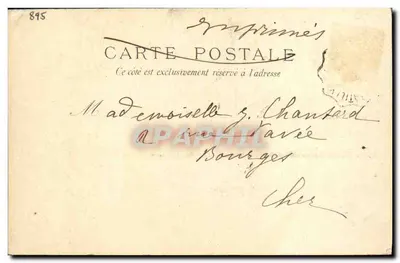 895
Imprimés
CARTE POSTALE
Ce côté est exclusivement réservé à l'adresse
Mademoiselle G. Chantard
rue Pavée
CPAPHIL
Bourges
Cher